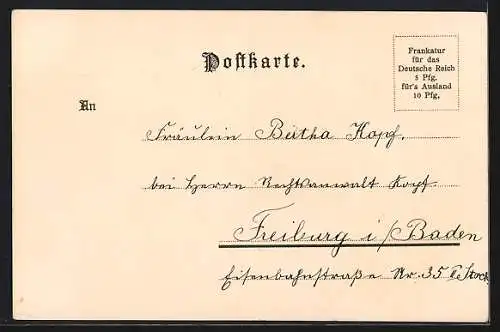 Postkarte.
Frankatur
für das
Deutsche Reich
5 Pfg.
für's Ausland
10 Pfg.
An
Fräulein Bertha Kopf.
bei Herrn Rechtsanwalt Kopf.
Freiburg i/Baden
Eisenbahnstraße Nr. 35 II. Stock